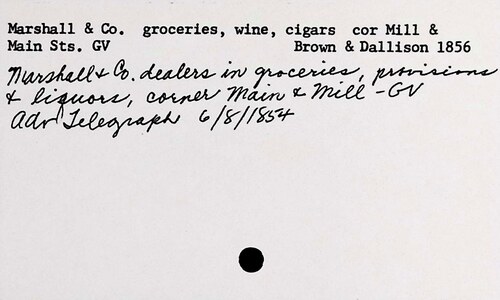 Marshall & Co. groceries, wine, cigars cor Mill &
Main Sts. GV Brown & Dallison 1856
Marshall & Co. dealers in groceries, provisions
& liquors, corner Main & Mill - GV
Adv Telegraph 6/8/1854